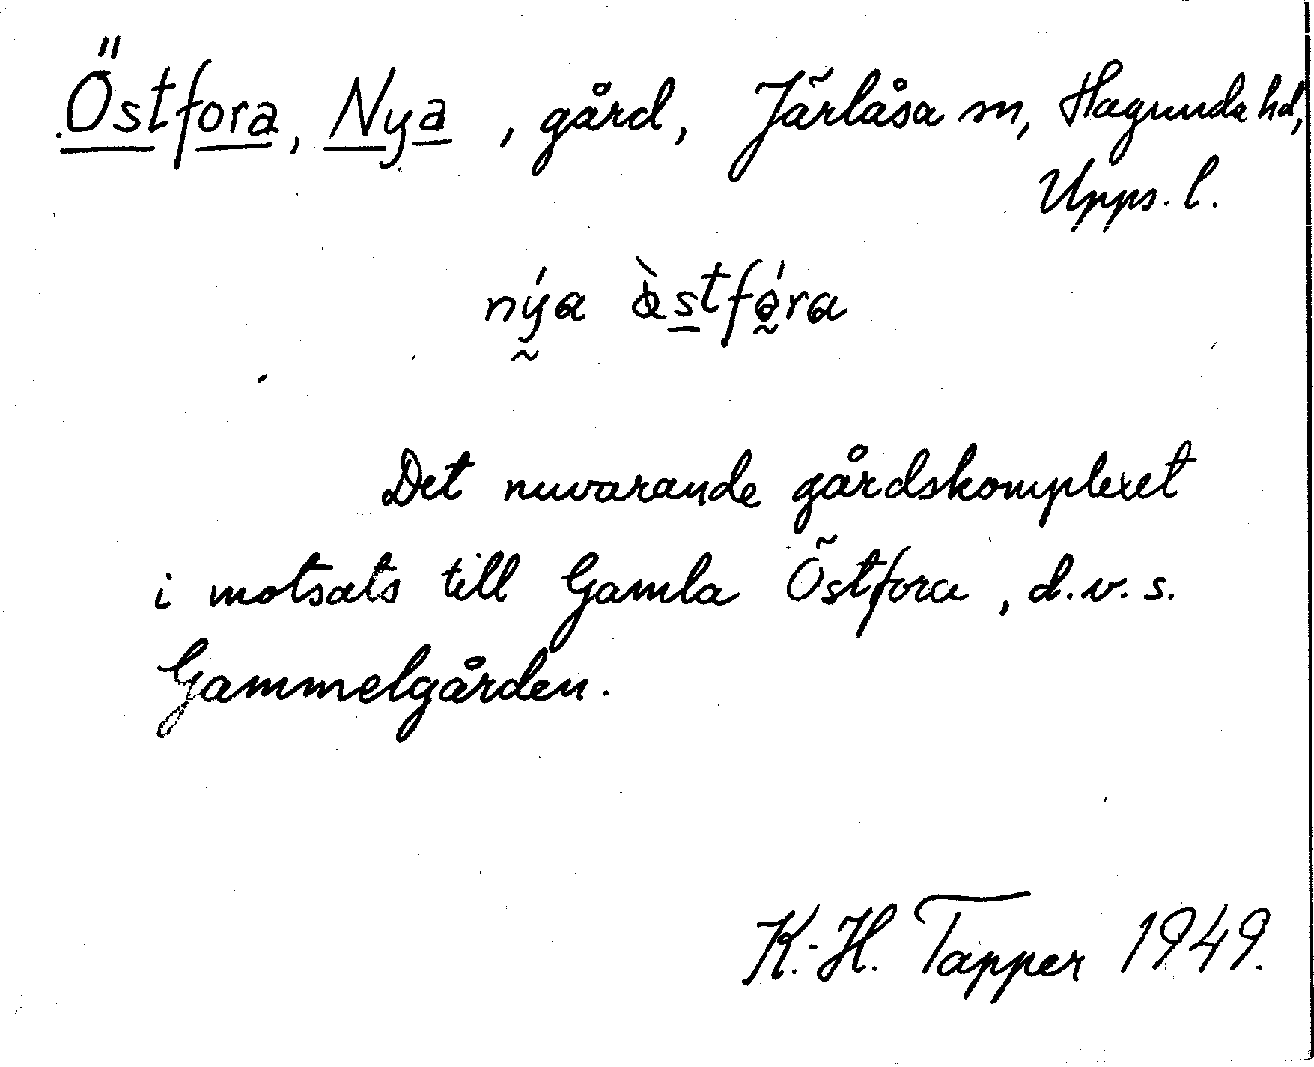 Östfora, Nya, gård, Järlåsa sn, Hagunda hd,
Upps. l.
nýa
Det nuvarande gårdskomplexet
i motsats till Gamla Östfora, d.v.s.
Gammelgården.
K.-H. Tapper 1949.